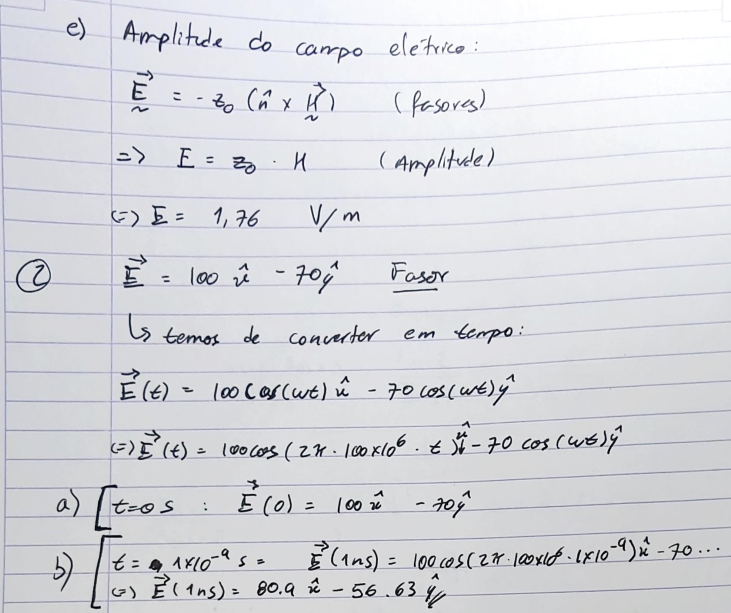 e) Amplitude do campo elétrico:
E⃗ = - z₀ (n̂ x H⃗) (fasores)
=> E = z₀ . H (Amplitude)
(=) E = 1,76 V/m
② E⃗ = 100 x̂ - 70ŷ Fasor
↳ temos de converter em tempo:
E⃗(t) = 100 cos(wt) x̂ - 70 cos(wt)ŷ
(=) E⃗(t) = 100cos(2π . 100x10⁶ . t)x̂ - 70 cos(wt)ŷ
a) [t=0 s : E⃗(0) = 100 x̂ - 70ŷ
b) [t = 1x10⁻⁹ s = E⃗(1ns) = 100cos(2π.100x10⁶.1x10⁻⁹)x̂ - 70...
(=) E⃗(1ns) = 80.9 x̂ - 56.63 ŷ//